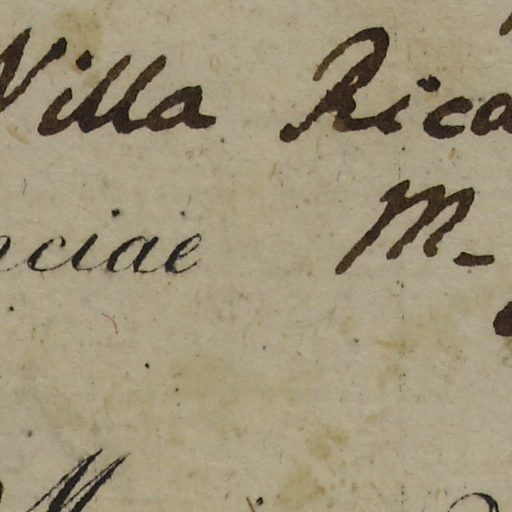 Villa Rica
nciae M-
M